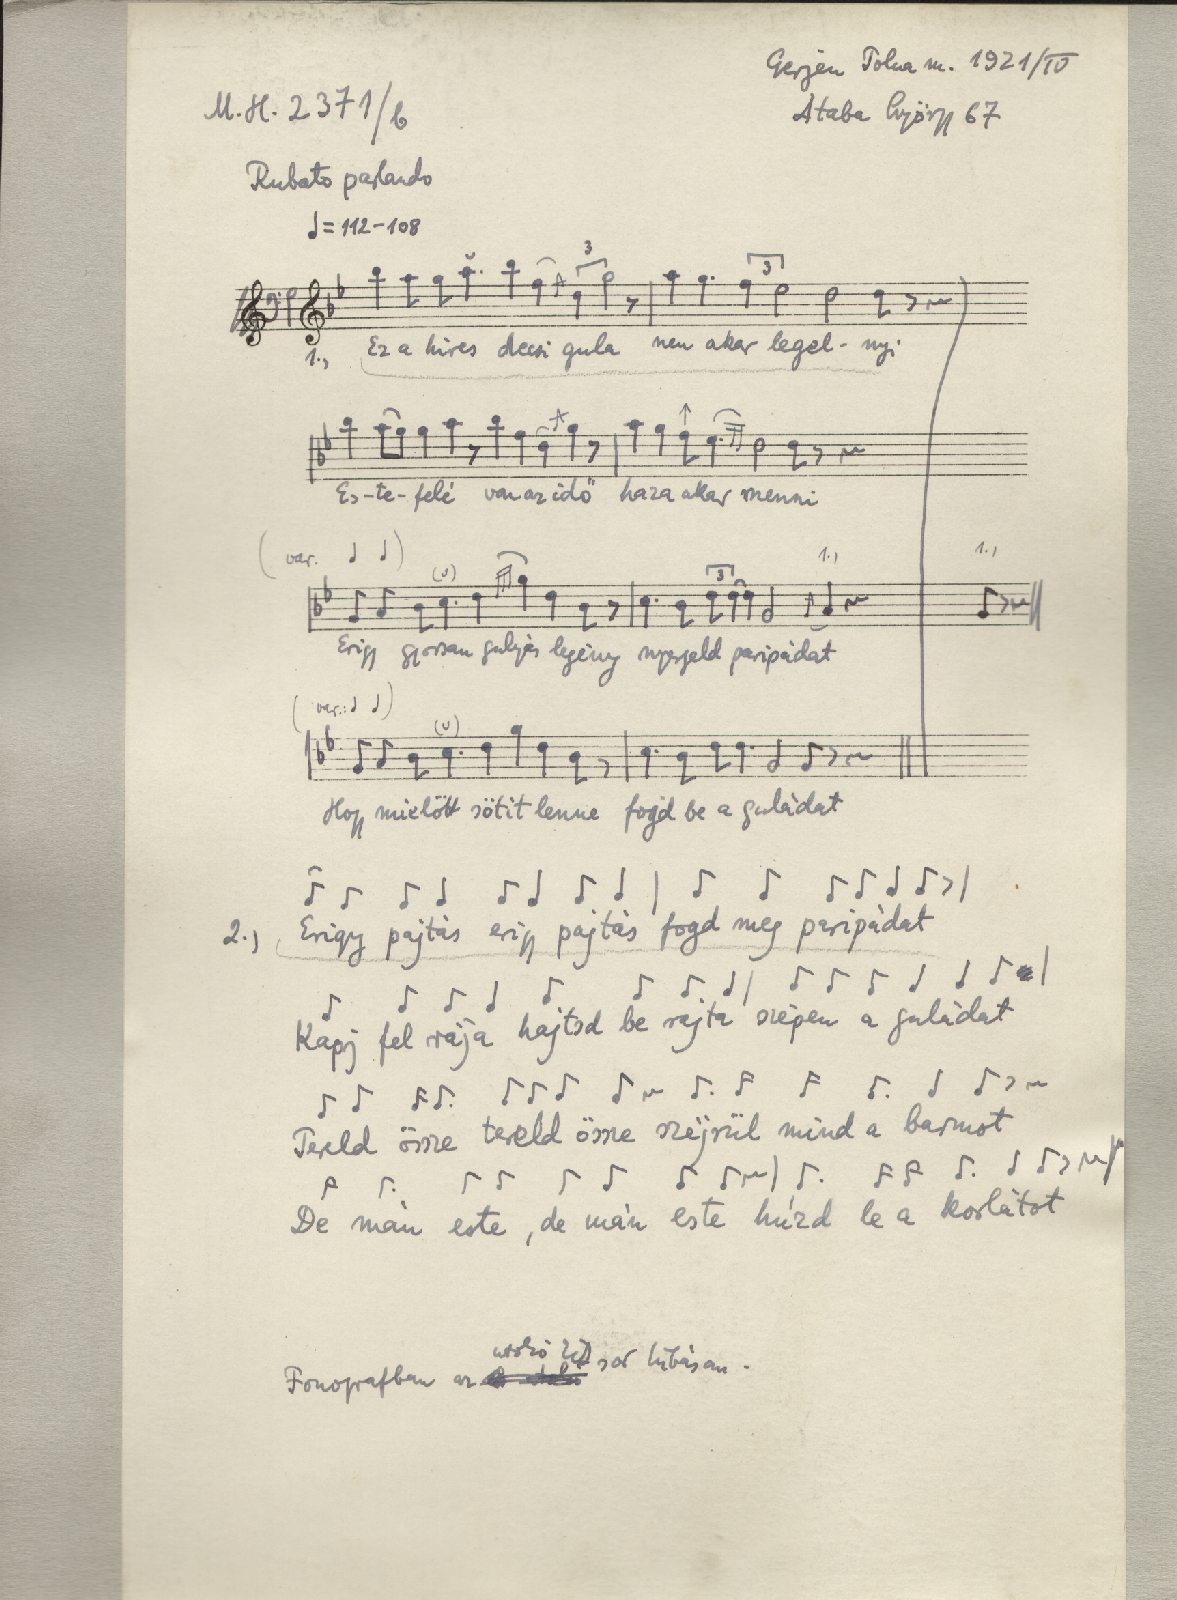 Gerjen Tolna m. 1921/IV
M.H. 2371/b
Ataba György 67
Rubato parlando
♩= 112-108
3
3
1., Ez a híres decsi gula nem akar legel- nyi
Es-te-felé van az idő haza akar menni
(var. ♩ ♩)
1.,
1.,
3
Erigy gyorsan gulyás legény nyergeld paripádat
(var.: ♩ ♩)
Hogy mielőtt sötit lenne fogd be a guládat
2., Erigy pajtás erigy pajtás fogd meg paripádat
Kapj fel rája hajtsd be rajta szépen a guládat
Tereld össze tereld össze széjrül mind a barmot
De mán este, de mán este húzd le a korlátot
utolsó két
Fonografban az sor hibásan.